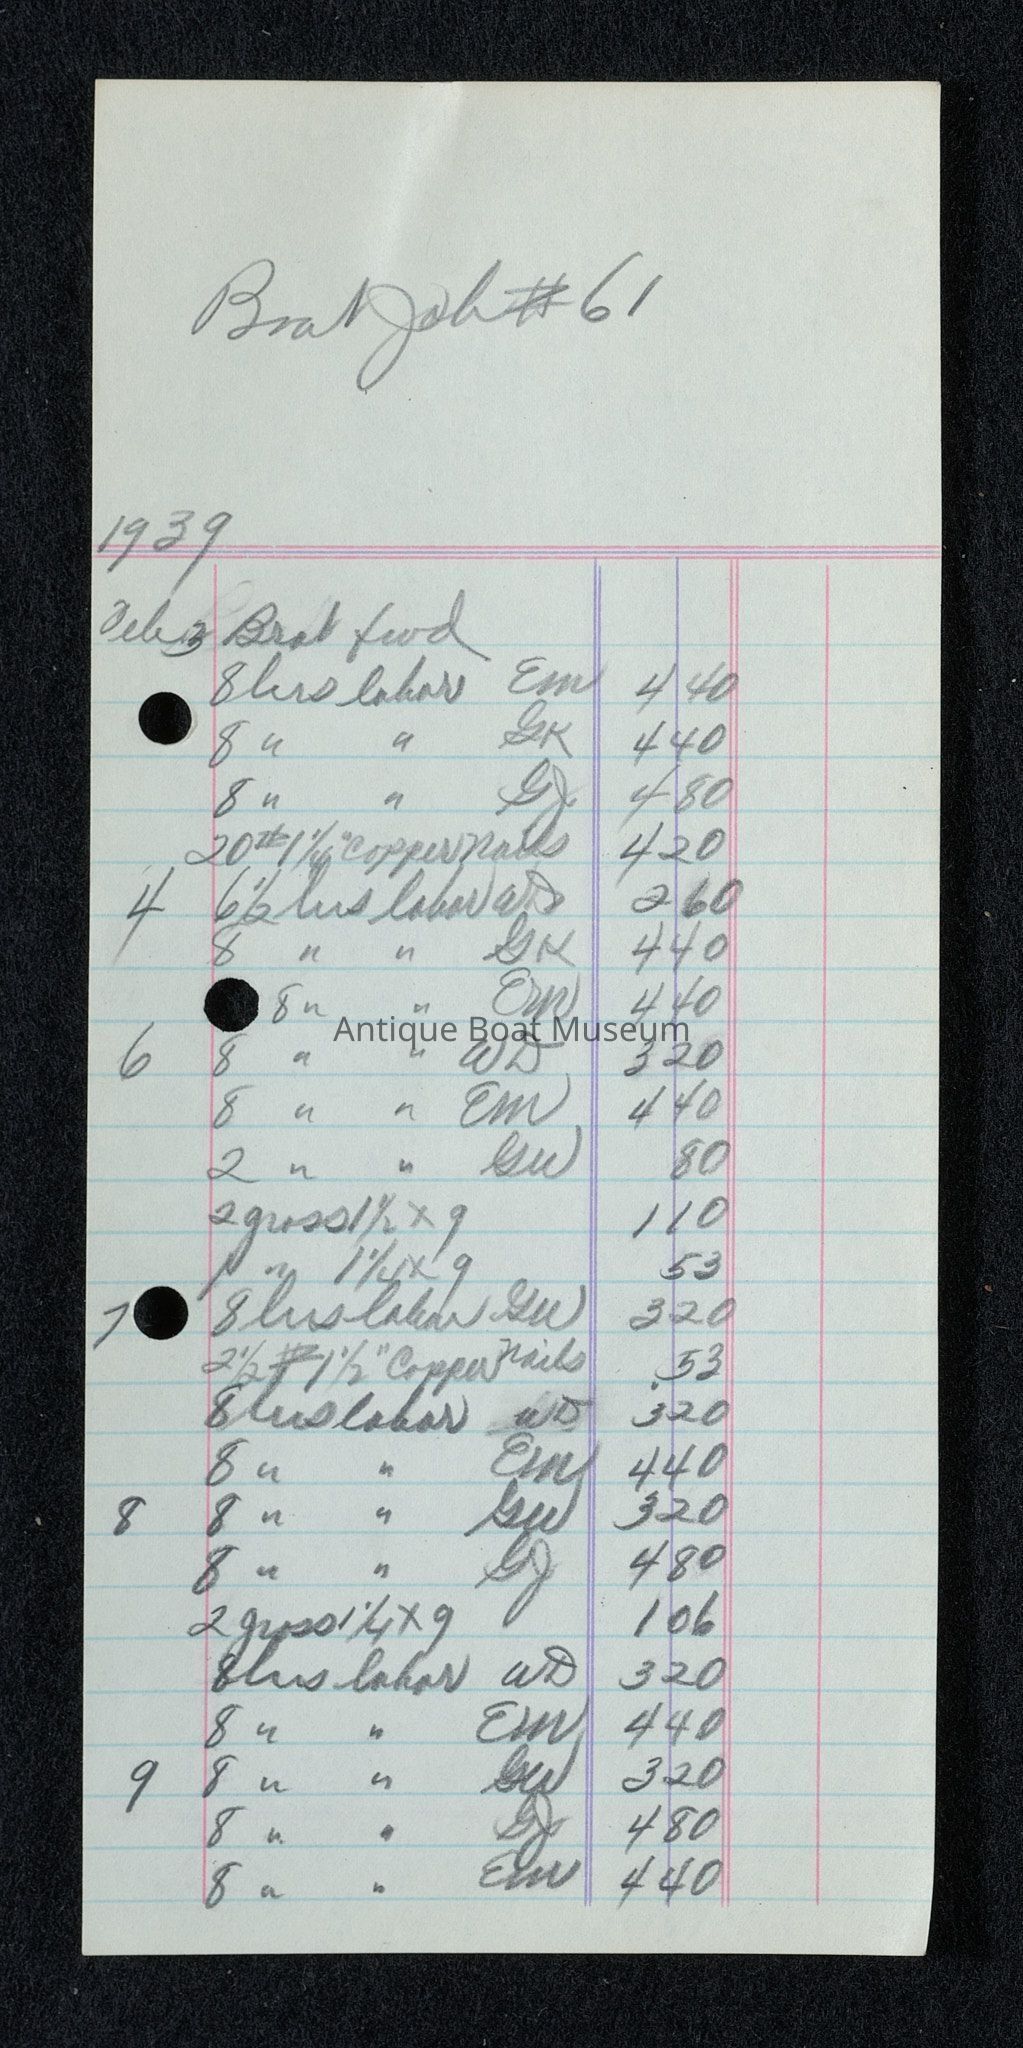 Boat Job #61
1939
Feb 3 Boat fwd
8 hrs labor Em 4 40
8 " " GK 4 40
8 " " GJ 4 80
20# 1 1/4" Copper nails 4 20
4 6 1/2 hrs labor WD 2 60
8 " " GK 4 40
8 " " Em 4 40
Antique Boat Museum
6 8 " " WD 3 20
8 " " Em 4 40
2 " " GW 80
2 gross 1 1/2 x 9 1 10
1 " 1 1/4 x 9 53
7 8 hrs labor GW 3 20
2 1/2 # 1 1/2" Copper nails 53
8 hrs labor WD 3 20
8 " " Em 4 40
8 8 " " GW 3 20
8 " " GJ 4 80
2 gross 1 1/4 x 9 1 06
8 hrs labor WD 3 20
8 " " Em 4 40
9 8 " " GW 3 20
8 " " GJ 4 80
8 " " Em 4 40